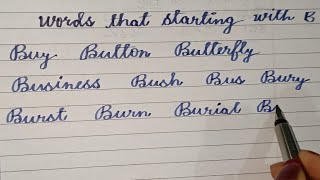 Words that starting with B
Buy Button Butterfly
Business Bush Bus Bury
Burst Burn Burial B